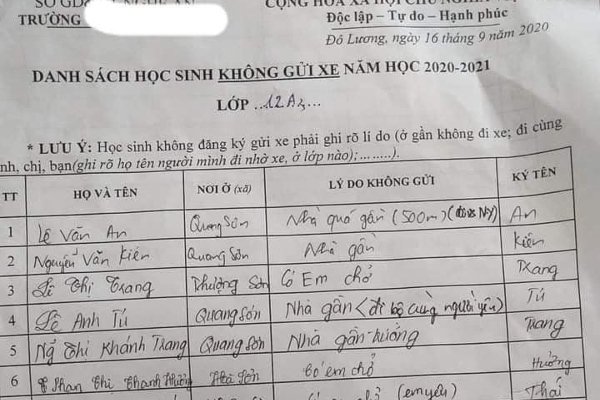 TRƯỜNG
Độc lập – Tự do – Hạnh phúc
Đô Lương, ngày 16 tháng 9 năm 2020
DANH SÁCH HỌC SINH KHÔNG GỬI XE NĂM HỌC 2020-2021
LỚP ..12A3...
* LƯU Ý: Học sinh không đăng ký gửi xe phải ghi rõ lí do (ở gần không đi xe; đi cùng
nh, chị, bạn(ghi rõ họ tên người mình đi nhờ xe, ở lớp nào);........).
TT HỌ VÀ TÊN NƠI Ở (xã) LÝ DO KHÔNG GỬI KÝ TÊN
1 Lê Văn An Quang Sơn Nhà quá gần (500m) An
2 Nguyễn Văn Kiên Quang Sơn Nhà gần Kiên
3 Lê Thị Trang Thượng Sơn Có Em chở Trang
4 Lê Anh Tú Quang Sơn Nhà gần (đi bộ cùng người yêu) Tú
5 Ng Thị Khánh Trang Quang Sơn Nhà gần trường Trang
6 Phan Thị Thanh Hường Hoà Sơn có em chở Hường
chở (em yêu) Thái